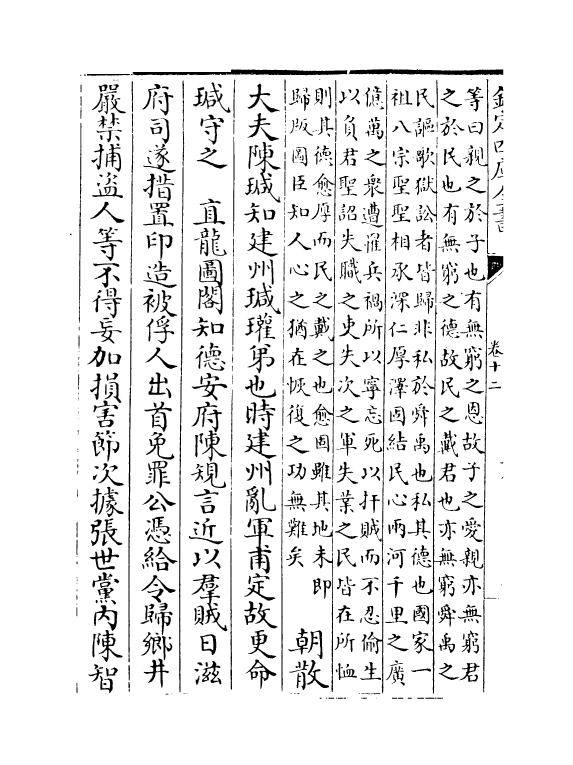 欽定四庫全書
卷十二
等曰親之於子也有無窮之恩故子之愛親亦無窮君
之於民也有無窮之德故民之戴君也亦無窮舜禹之
民謳歌獄訟者皆歸非私於舜禹也私其德也國家一
祖八宗聖聖相承深仁厚澤固結民心兩河千里之廣
億萬之衆遭罹兵禍所以寧忘死以扞賊而不忍偷生
以負君聖詔失職之吏失次之軍失業之民皆在所恤
則其德愈厚而民之戴之也愈固雖其地未即
歸版圖臣知人心之猶在恢復之功無難矣
朝散
大夫陳瑊知建州瑊瓘弟也時建州亂軍甫定故更命
瑊守之　直龍圖閣知德安府陳規言近以羣賊日滋
府司遂措置印造被俘人出首免罪公憑給令歸鄉井
嚴禁捕盜人等不得妄加損害節次據張世黨内陳智